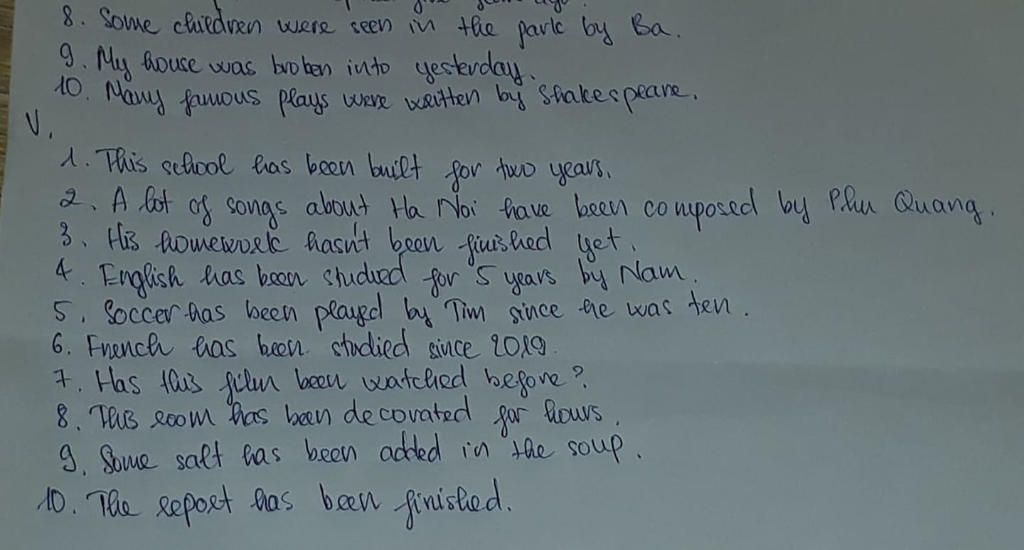 8. Some children were seen in the park by Ba.
9. My house was broken into yesterday.
10. Many famous plays were written by Shakespeare.
V.
1. This school has been built for two years.
2. A lot of songs about Ha Noi have been composed by Phu Quang.
3. His homework hasn't been finished yet.
4. English has been studied for 5 years by Nam.
5. Soccer has been played by Tim since he was ten.
6. French has been studied since 2019.
7. Has this film been watched before?
8. This room has been decorated for hours.
9. Some salt has been added in the soup.
10. The report has been finished.